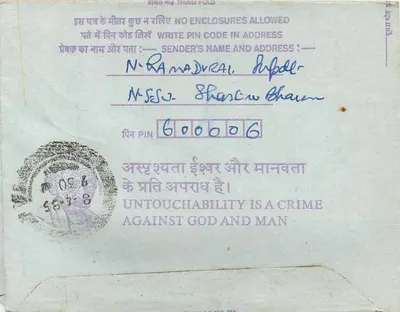 THIRD FOLD
इस पत्र के भीतर कुछ न रखिए NO ENCLOSURES ALLOWED
पते में पिन कोड लिखिए WRITE PIN CODE IN ADDRESS
प्रेषक का नाम और पता :— SENDER'S NAME AND ADDRESS :—
N. RAMADURAI,
Bhavan
पिन PIN 600606
अस्पृश्यता ईश्वर और मानवता
के प्रति अपराध है।
UNTOUCHABILITY IS A CRIME
AGAINST GOD AND MAN